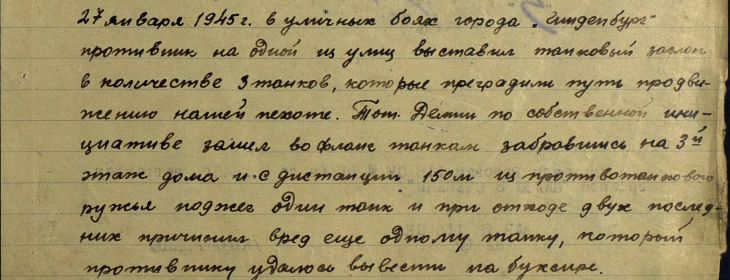 27 января 1945 г. в уличных боях города "Гинденбург"
противник на одной из улиц выставил танковый заслон
в количестве 3 танков, которые преградили путь продви-
жению нашей пехоте. Тов. Демин по собственной ини-
циативе зашел во фланг танкам забравшись на 3й
этаж дома и с дистанции 150 м из противотанкового
ружья поджег один танк и при отходе двух послед-
них причинил вред еще одному танку, который
противнику удалось вывести на буксире.